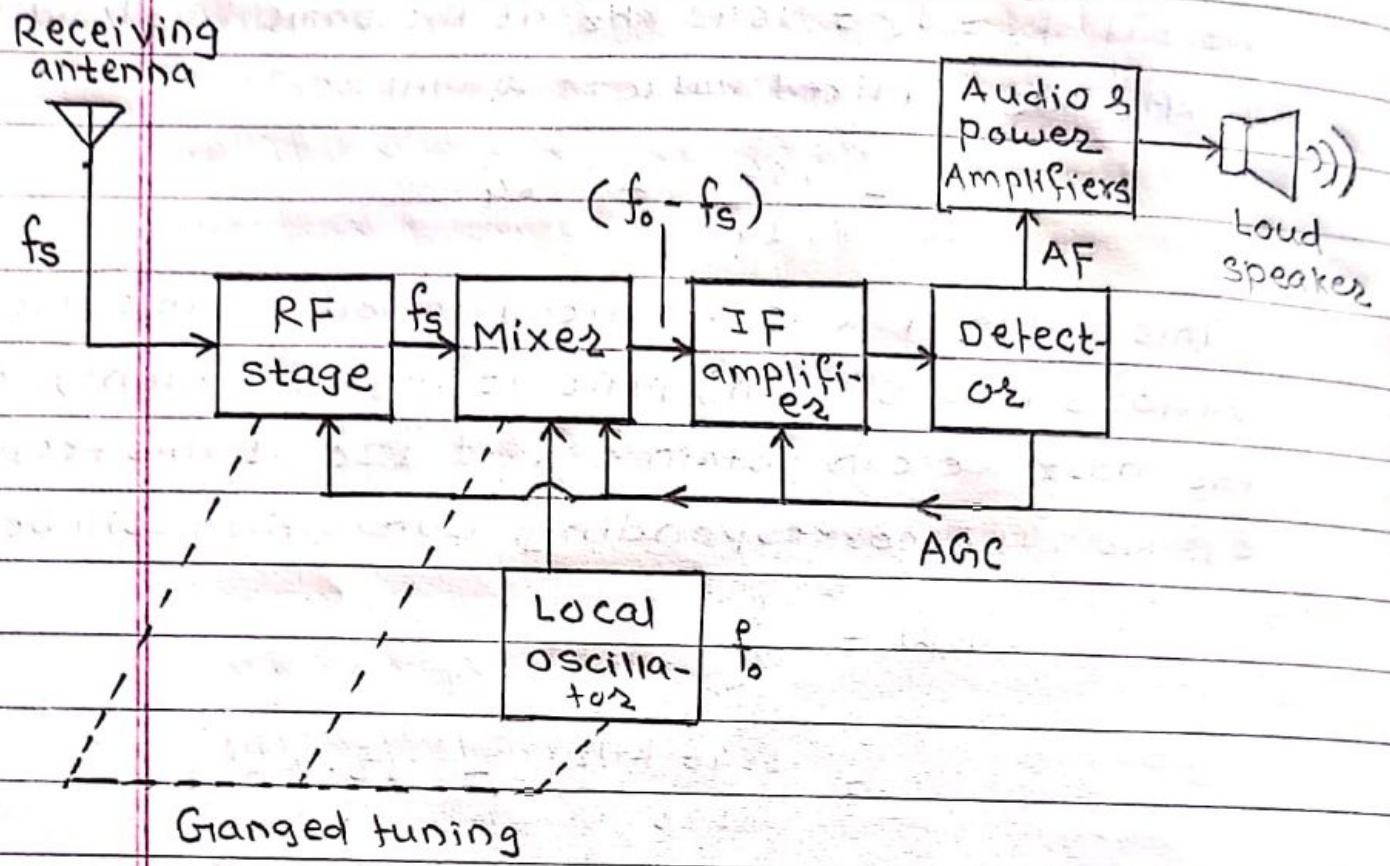 Receiving
antenna
fs
RF
stage
fs
Mixer
(fo - fs)
IF
amplifi-
er
Detect-
or
AF
Audio &
power
Amplifiers
Loud
speaker
AGC
Local
oscilla-
tor
fo
Ganged tuning